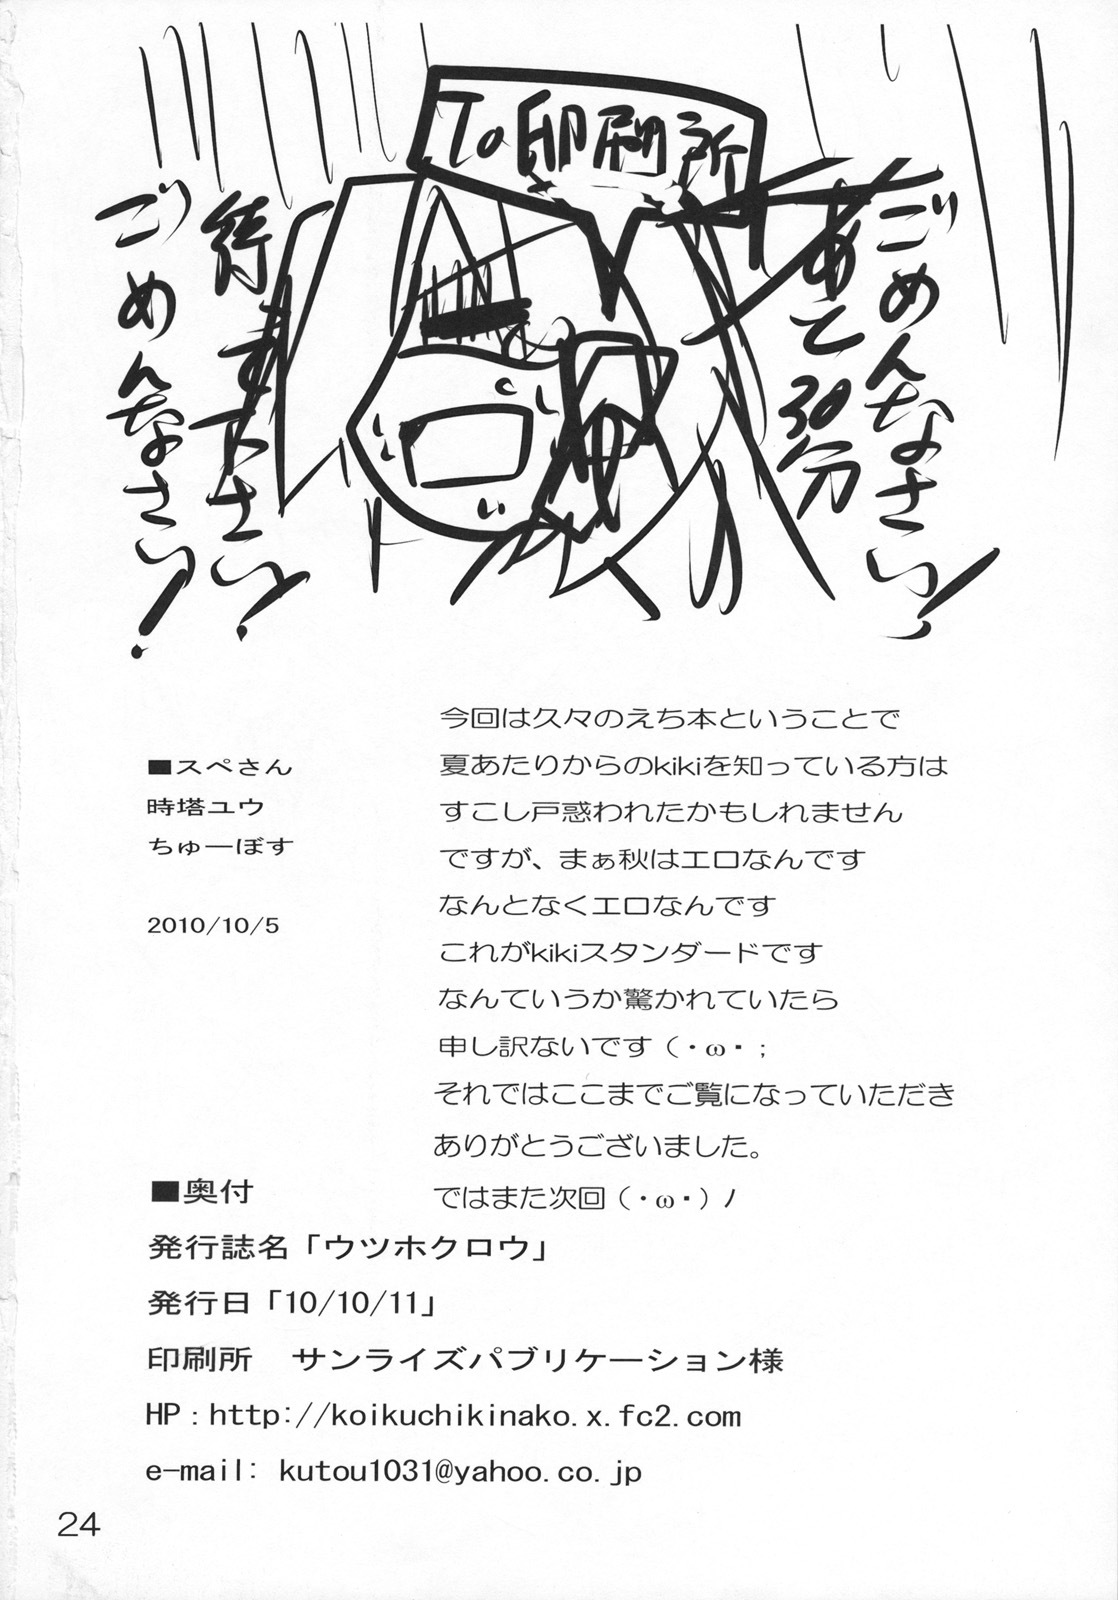 To 印刷所
ごめんなさい!
あと30分
待す下さい!
ごめんなさい!
■スペさん
時塔ユウ
ちゅーぼす
2010/10/5
今回は久々のえち本ということで
夏あたりからのkikiを知っている方は
すこし戸惑われたかもしれません
ですが、まぁ秋はエロなんです
なんとなくエロなんです
これがkikiスタンダードです
なんていうか驚かれていたら
申し訳ないです(・ω・;
それではここまでご覧になっていただき
ありがとうございました。
ではまた次回(・ω・)ノ
■奥付
発行誌名「ウツホクロウ」
発行日「10/10/11」
印刷所 サンライズパブリケーション様
HP:http://koikuchikinako.x.fc2.com
e-mail: kutou1031@yahoo.co.jp
24